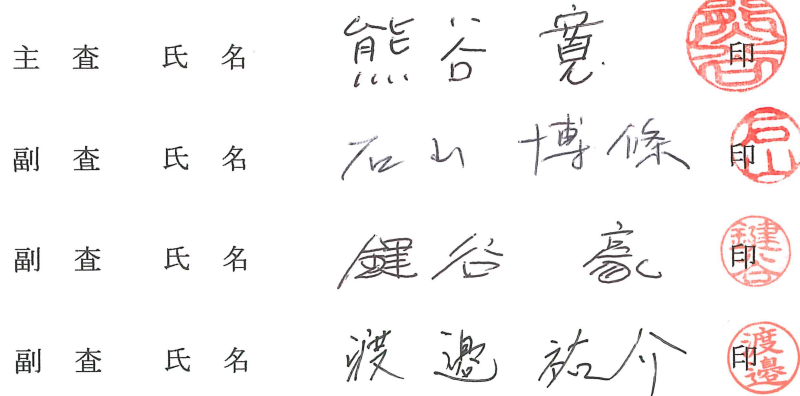 主査 氏名 熊谷 寛 印 熊谷
副査 氏名 石山 博條 印 石山
副査 氏名 鍵谷 豪 印 鍵谷
副査 氏名 渡邉 祐介 印 渡邉